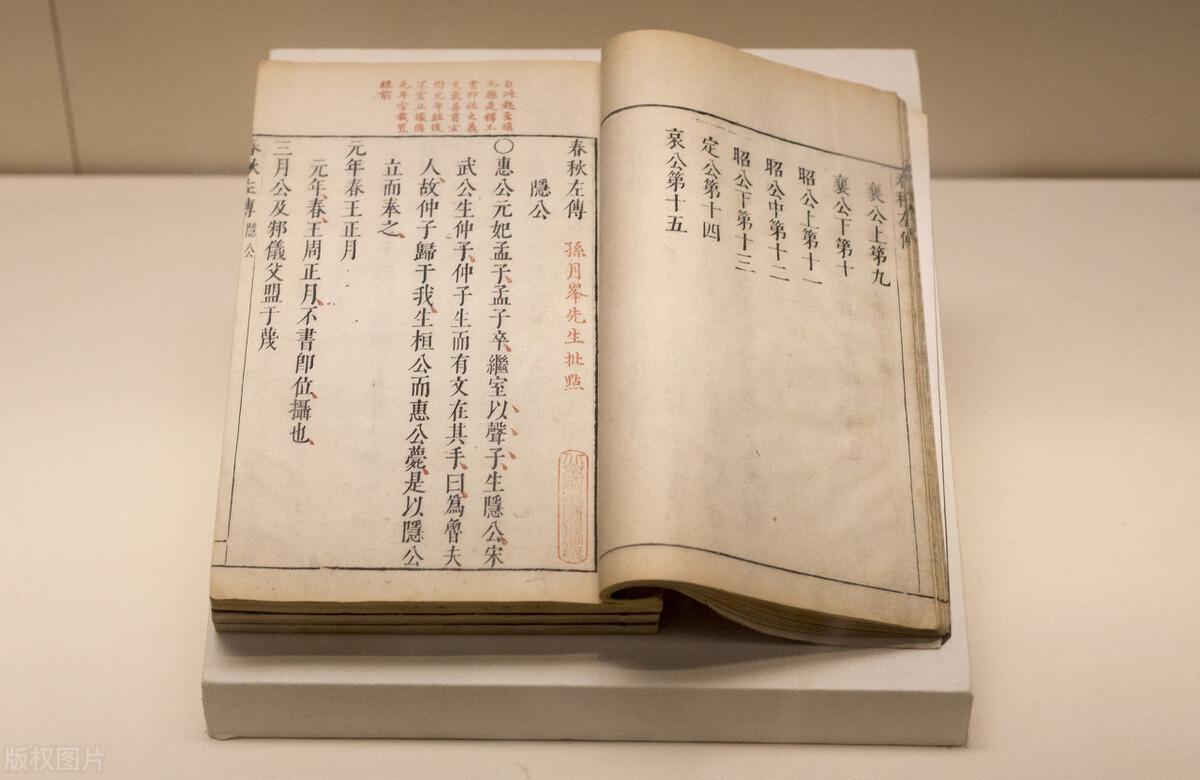 襄公上第九
襄公下第十
昭公上第十一
昭公中第十二
昭公下第十三
定公第十四
哀公第十五
春秋左傳
孫月峯先生批點
隱公
○惠公元妃孟子孟子卒繼室以聲子生隱公宋
武公生仲子仲子生而有文在其手曰爲魯夫
人故仲子歸于我生桓公而惠公薨是以隱公
立而奉之
元年春王正月
元年春王周正月不書卽位攝也
三月公及邾儀父盟于蔑
春秋左傳 隱公
版权图片